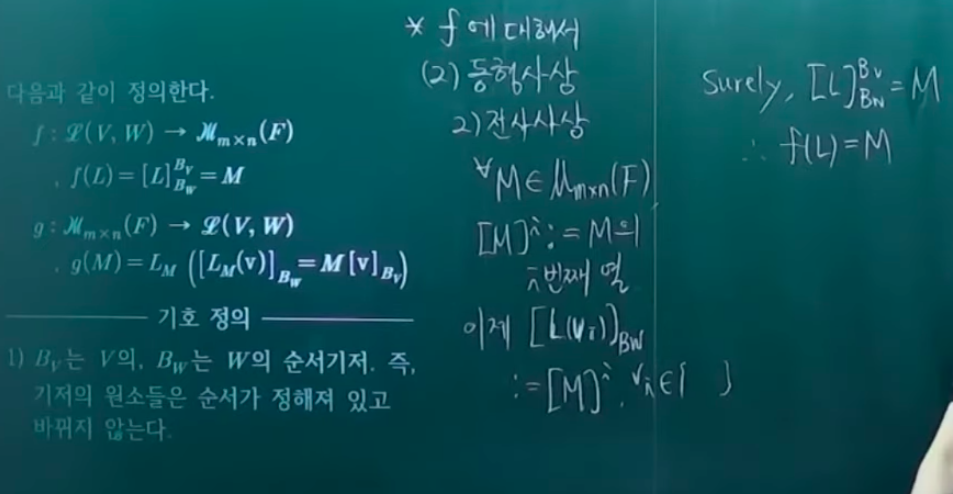 다음과 같이 정의한다.
f : ℒ(V, W) → ℳ_{m×n}(F)
, f(L) = [L]^{B_V}_{B_W} = M
g : ℳ_{m×n}(F) → ℒ(V, W)
, g(M) = L_M ([L_M(v)]_{B_W} = M[v]_{B_V})
기호 정의
1) B_V는 V의, B_W는 W의 순서기저. 즉,
기저의 원소들은 순서가 정해져 있고
바뀌지 않는다.
* f에 대해서
(2) 동형사상
2) 전사사상
∀M∈ℳ_{m×n}(F),
[M]^i := M의
i번째 열
이제 [L(v_i)]_{B_W}
:= [M]^i, ∀i∈{ }
Surely, [L]^{B_V}_{B_W} = M
∴ f(L) = M